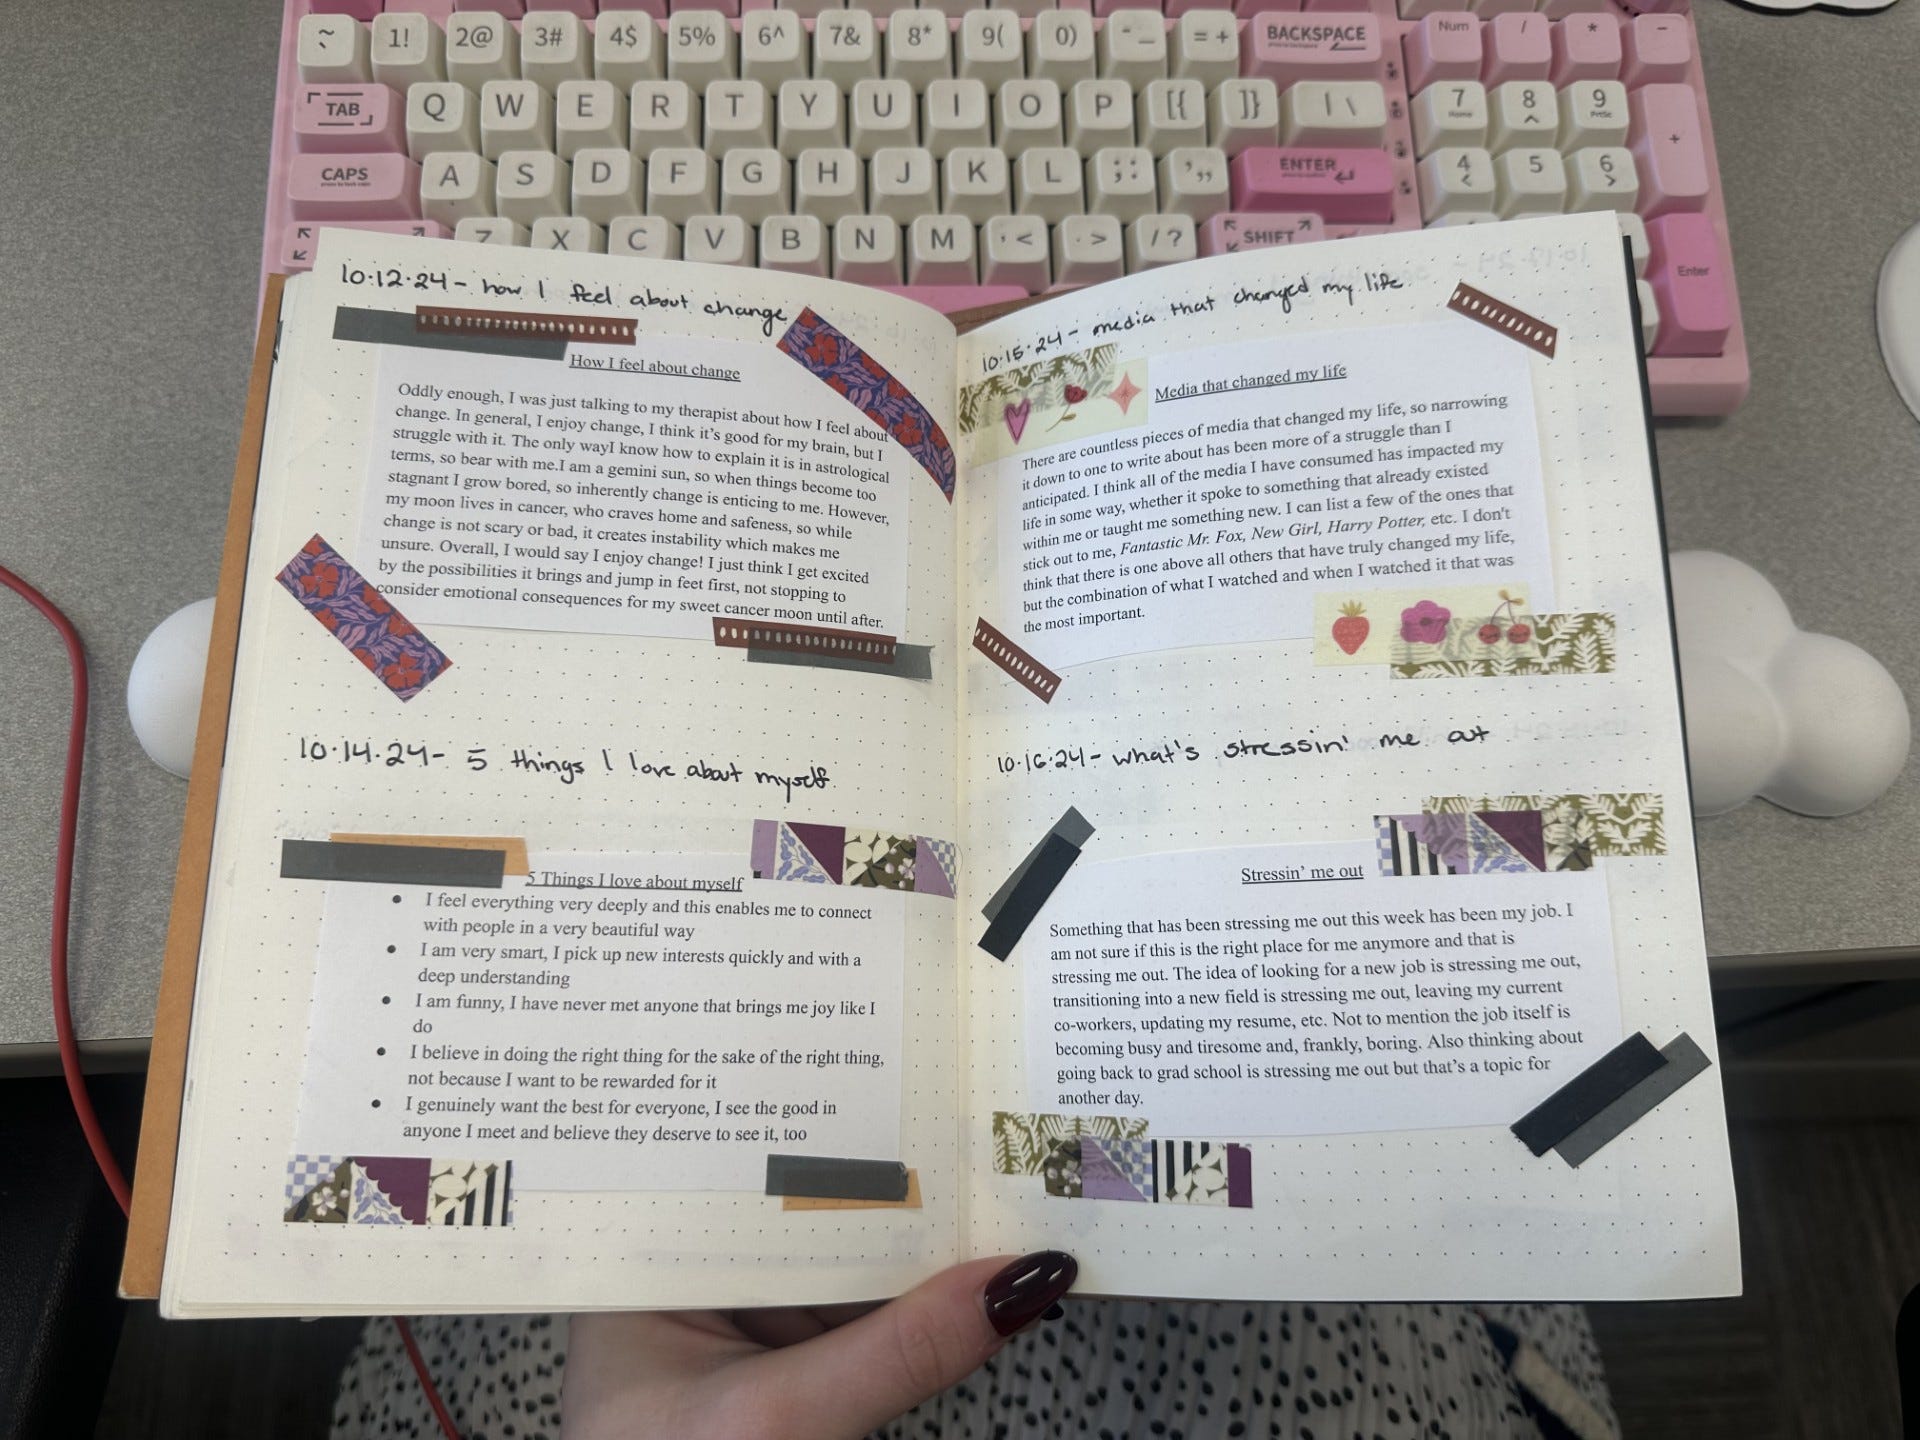 ~ ` 1! 2@ 3# 4$ 5% 6^ 7& 8* 9( 0) - _ = + BACKSPACE Num / * -
TAB Q W E R T Y U I O P [{ ]} | \ 7 Home 8 9 PrtSc +
CAPS A S D F G H J K L ;: ',, ENTER 4 5 6
Z X C V B N M , < . > / ? SHIFT Enter
10.12.24 - how I feel about change
How I feel about change
Oddly enough, I was just talking to my therapist about how I feel about
change. In general, I enjoy change, I think it's good for my brain, but I
struggle with it. The only wayI know how to explain it is in astrological
terms, so bear with me.I am a gemini sun, so when things become too
stagnant I grow bored, so inherently change is enticing to me. However,
my moon lives in cancer, who craves home and safeness, so while
change is not scary or bad, it creates instability which makes me
unsure. Overall, I would say I enjoy change! I just think I get excited
by the possibilities it brings and jump in feet first, not stopping to
consider emotional consequences for my sweet cancer moon until after.
10.14.24 - 5 things I love about myself
5 Things I love about myself
• I feel everything very deeply and this enables me to connect
with people in a very beautiful way
• I am very smart, I pick up new interests quickly and with a
deep understanding
• I am funny, I have never met anyone that brings me joy like I
do
• I believe in doing the right thing for the sake of the right thing,
not because I want to be rewarded for it
• I genuinely want the best for everyone, I see the good in
anyone I meet and believe they deserve to see it, too
10.15.24 - media that changed my life
Media that changed my life
There are countless pieces of media that changed my life, so narrowing
it down to one to write about has been more of a struggle than I
anticipated. I think all of the media I have consumed has impacted my
life in some way, whether it spoke to something that already existed
within me or taught me something new. I can list a few of the ones that
stick out to me, Fantastic Mr. Fox, New Girl, Harry Potter, etc. I don't
think that there is one above all others that have truly changed my life,
but the combination of what I watched and when I watched it that was
the most important.
10.16.24 - what's stressin' me out
Stressin' me out
Something that has been stressing me out this week has been my job. I
am not sure if this is the right place for me anymore and that is
stressing me out. The idea of looking for a new job is stressing me out,
transitioning into a new field is stressing me out, leaving my current
co-workers, updating my resume, etc. Not to mention the job itself is
becoming busy and tiresome and, frankly, boring. Also thinking about
going back to grad school is stressing me out but that's a topic for
another day.